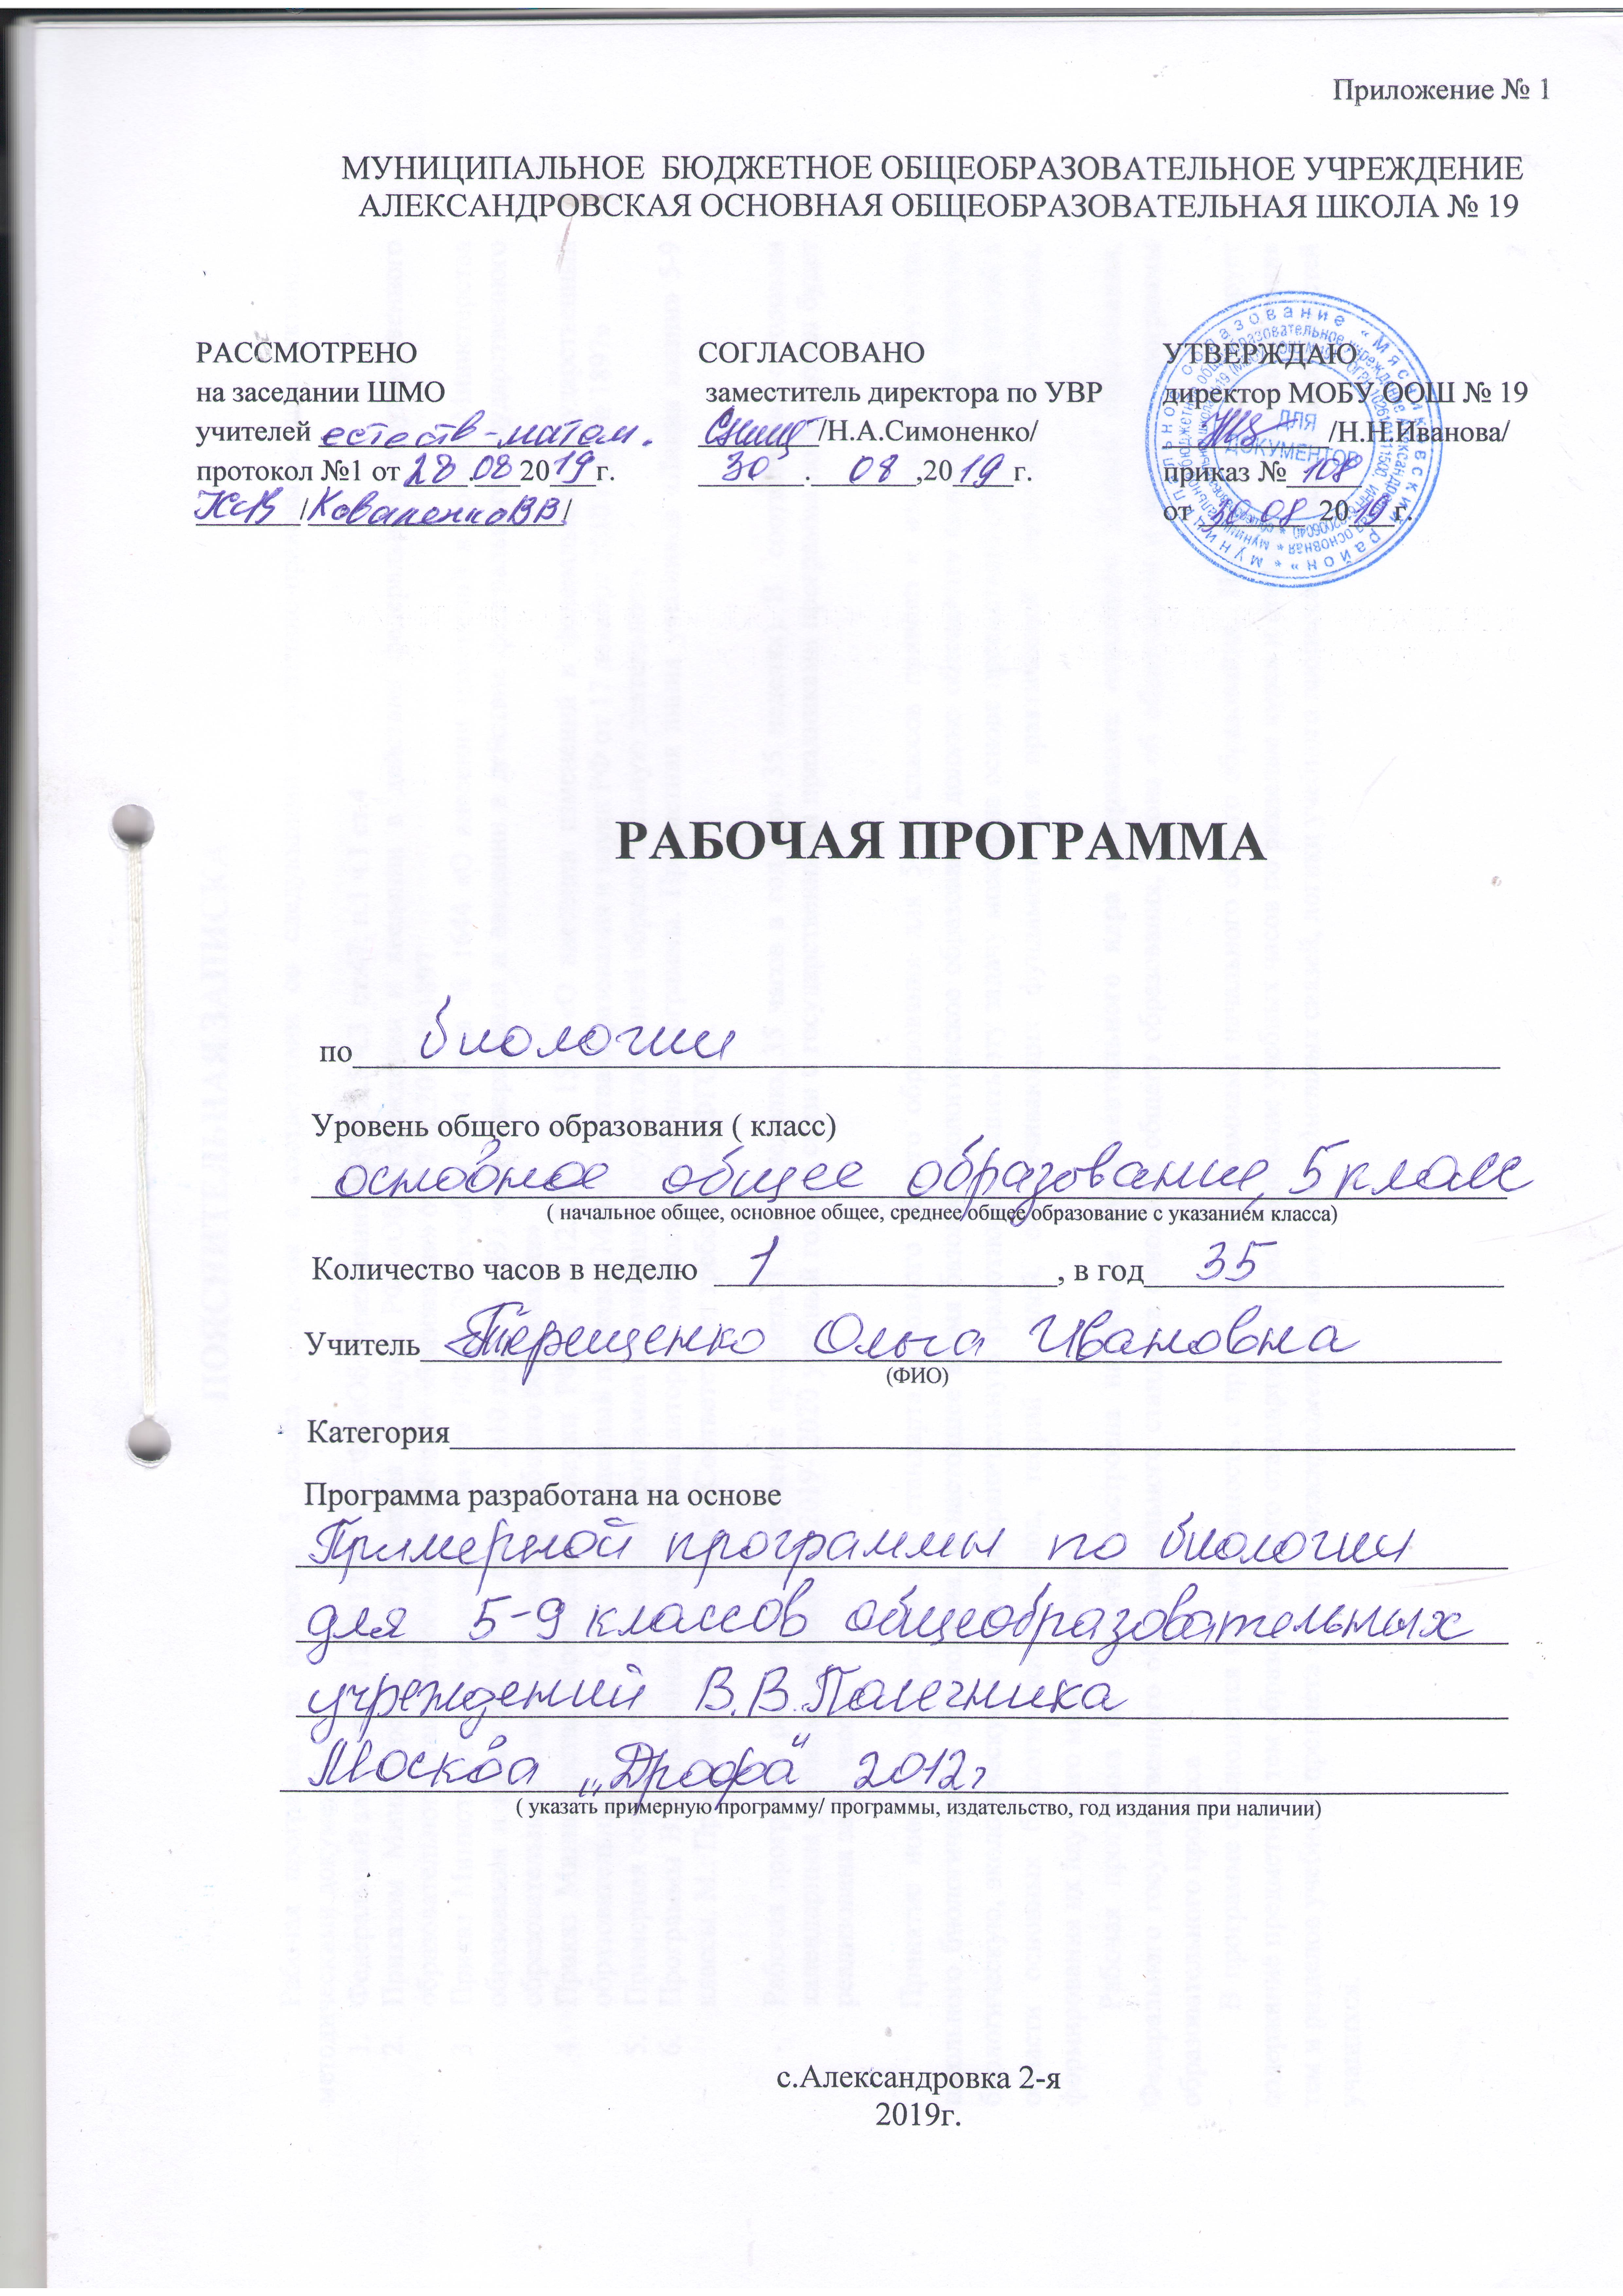 Приложение № 1
МУНИЦИПАЛЬНОЕ БЮДЖЕТНОЕ ОБЩЕОБРАЗОВАТЕЛЬНОЕ УЧРЕЖДЕНИЕ
АЛЕКСАНДРОВСКАЯ ОСНОВНАЯ ОБЩЕОБРАЗОВАТЕЛЬНАЯ ШКОЛА № 19
РАССМОТРЕНО
на заседании ШМО
учителей естеств-матем.
протокол №1 от 28.08 2019 г.
/Коваленко ВВ/
СОГЛАСОВАНО
заместитель директора по УВР
/Н.А.Симоненко/
30 . 08 ,2019 г.
УТВЕРЖДАЮ
директор МОБУ ООШ № 19
/Н.Н.Иванова/
приказ № 108
от 30 08 2019 г.
ДЛЯ
ДОКУМЕНТОВ
РАБОЧАЯ ПРОГРАММА
по биологии
Уровень общего образования ( класс)
основное общее образование, 5 класс
( начальное общее, основное общее, среднее общее образование с указанием класса)
Количество часов в неделю 1 , в год 35
Учитель Терещенко Ольга Ивановна
(ФИО)
Категория
Программа разработана на основе
Примерной программы по биологии
для 5-9 классов общеобразовательных
учреждений В.В.Пасечника
Москва „Дрофа" 2012г
( указать примерную программу/ программы, издательство, год издания при наличии)
с.Александровка 2-я
2019г.